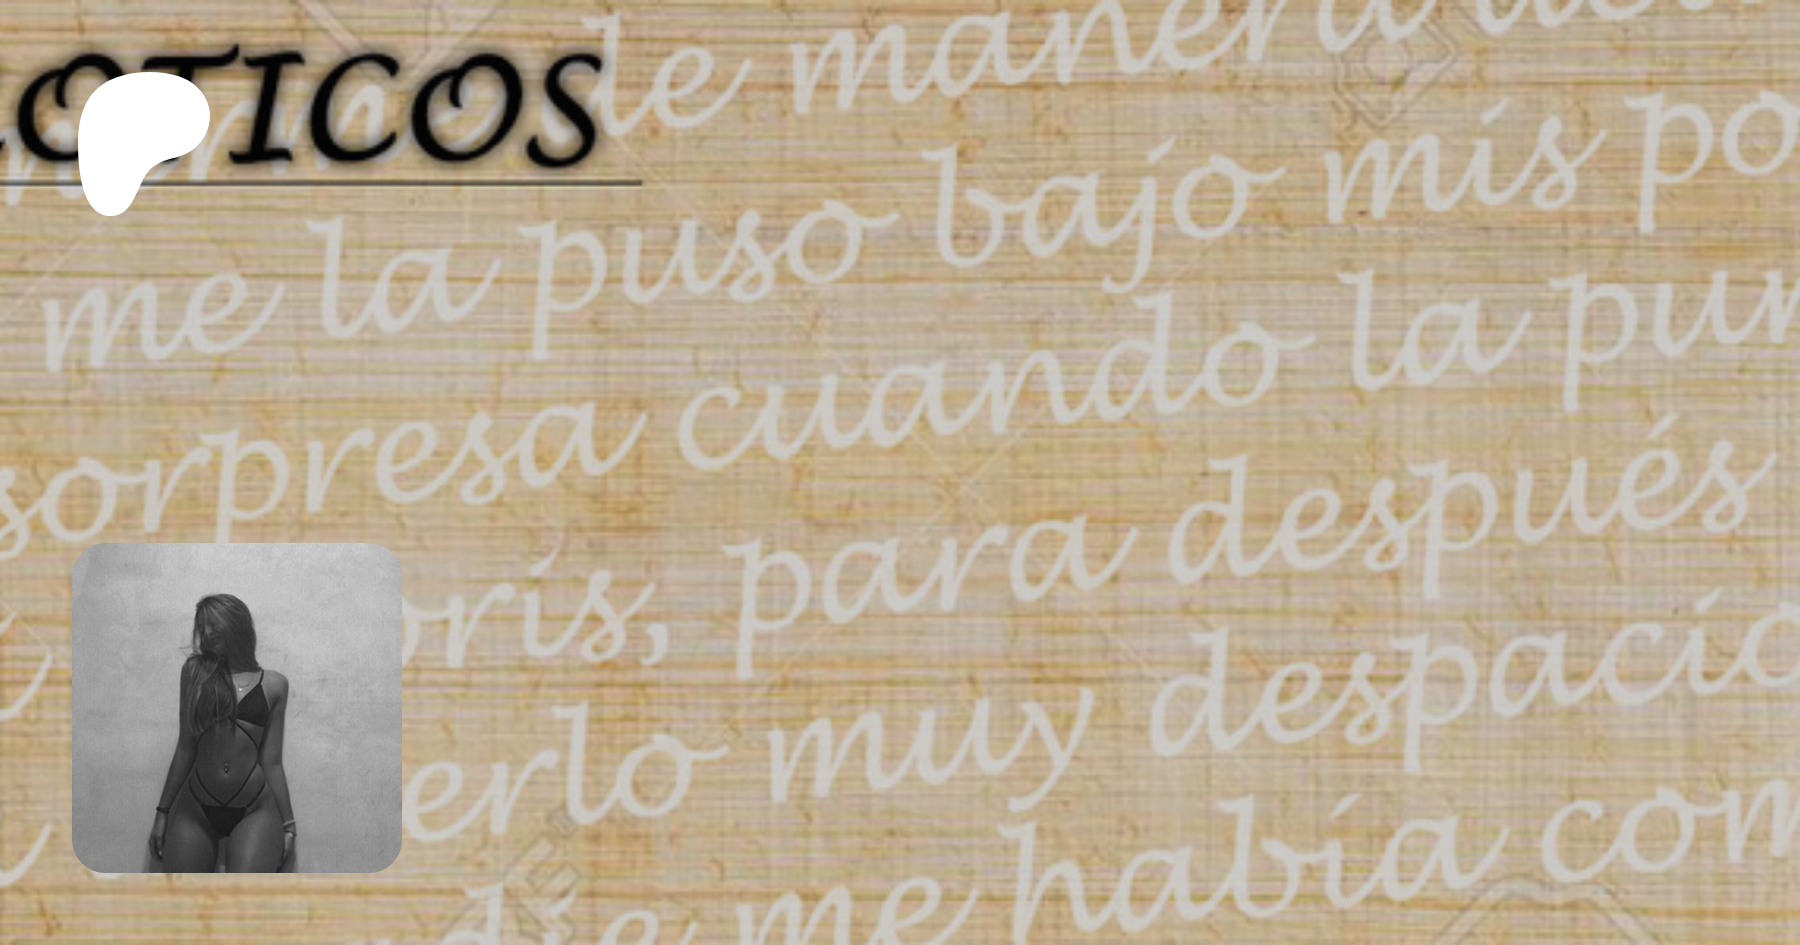 OTICOS
le manera
me la puso bajo mis
sorpresa cuando la
para después
muy despacio
me había